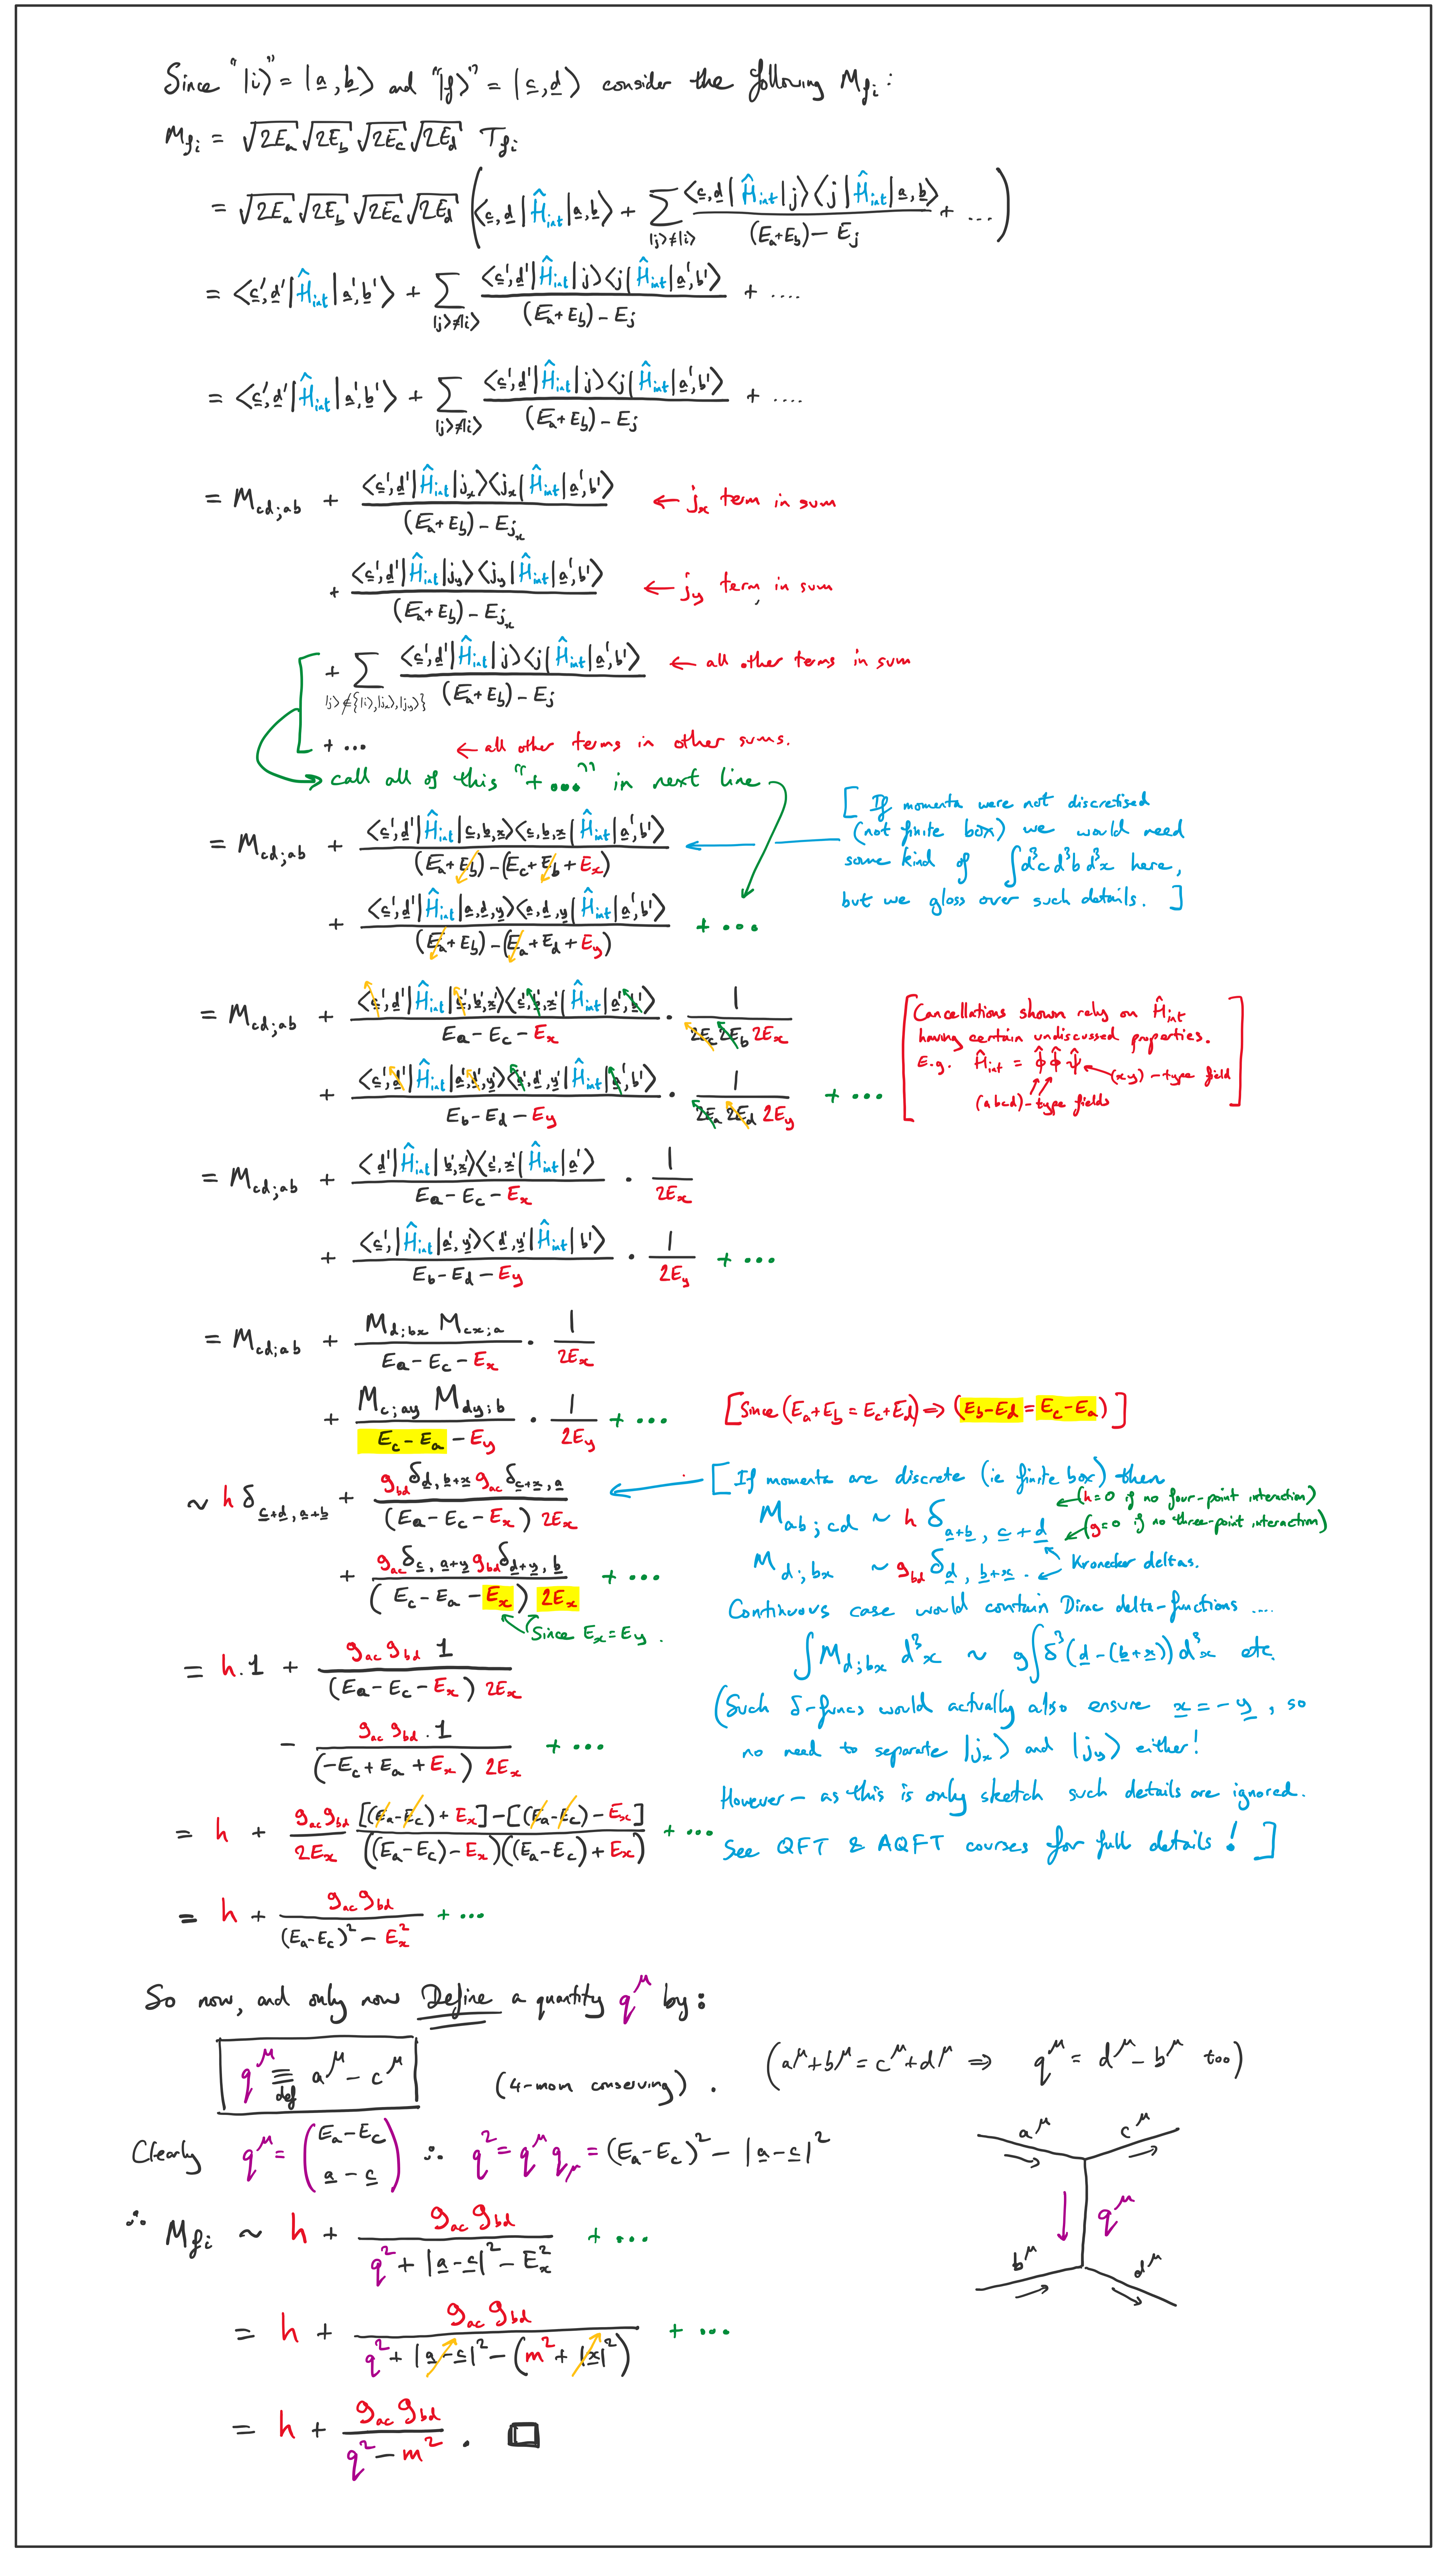 Since "|i⟩" = |a, b⟩ and "|f⟩" = |c, d⟩ consider the following M_fi :
M_fi = √2E_a √2E_b √2E_c √2E_d T_fi
= √2E_a √2E_b √2E_c √2E_d ( ⟨c, d| Ĥ_int |a, b⟩ + ∑_{|j⟩≠|i⟩} ⟨c, d| Ĥ_int |j⟩⟨j| Ĥ_int |a, b⟩ / ((E_a+E_b) − E_j) + ... )
= ⟨c', d'| Ĥ_int |a', b'⟩ + ∑_{|j⟩≠|i⟩} ⟨c', d'| Ĥ_int |j⟩⟨j| Ĥ_int |a', b'⟩ / ((E_a+E_b) − E_j) + ....
= ⟨c', d'| Ĥ_int |a', b'⟩ + ∑_{|j⟩≠|i⟩} ⟨c', d'| Ĥ_int |j⟩⟨j| Ĥ_int |a', b'⟩ / ((E_a+E_b) − E_j) + ....
= M_cd;ab + ⟨c', d'| Ĥ_int |j_x⟩⟨j_x| Ĥ_int |a', b'⟩ / ((E_a+E_b) − E_{j_x}) ← j_x term in sum
+ ⟨c', d'| Ĥ_int |j_y⟩⟨j_y| Ĥ_int |a', b'⟩ / ((E_a+E_b) − E_{j_x}) ← j_y term in sum
+ ∑_{|j⟩∉{|i⟩,|j_x⟩,|j_y⟩}} ⟨c', d'| Ĥ_int |j⟩⟨j| Ĥ_int |a', b'⟩ / ((E_a+E_b) − E_j) ← all other terms in sum
+ ... ← all other terms in other sums.
call all of this "+ ..." in next line
= M_cd;ab + ⟨c', d'| Ĥ_int |c, b, x⟩⟨c, b, x| Ĥ_int |a', b'⟩ / ((E_a+E_b) − (E_c + E_b + E_x))
[ If momenta were not discretised
(not finite box) we would need
some kind of ∫d³c d³b d³x here,
but we gloss over such details. ]
+ ⟨c', d'| Ĥ_int |a, d, y⟩⟨a, d, y| Ĥ_int |a', b'⟩ / ((E_a+E_b) − (E_a + E_d + E_y)) + ...
= M_cd;ab + ⟨c', d'| Ĥ_int |c', b', x'⟩⟨c', b', x'| Ĥ_int |a', b'⟩ / (E_a − E_c − E_x) · 1 / (2E_c 2E_b 2E_x)
+ ⟨c', d'| Ĥ_int |a', d', y'⟩⟨a', d', y'| Ĥ_int |a', b'⟩ / (E_b − E_d − E_y) · 1 / (2E_a 2E_d 2E_y) + ...
[ Cancellations shown rely on Ĥ_int
having certain undiscussed properties.
E.g. Ĥ_int = φ̂ φ̂ ψ̂ ← (xy)-type field
(abcd)-type fields ]
= M_cd;ab + ⟨d'| Ĥ_int |b', x'⟩⟨c', x'| Ĥ_int |a'⟩ / (E_a − E_c − E_x) · 1 / 2E_x
+ ⟨c', | Ĥ_int |a', y'⟩⟨d', y'| Ĥ_int |b'⟩ / (E_b − E_d − E_y) · 1 / 2E_y + ...
= M_cd;ab + M_d;bx M_cx;a / (E_a − E_c − E_x) · 1 / 2E_x
+ M_c;ay M_dy;b / (E_c − E_a − E_y) · 1 / 2E_y + ... [Since (E_a+E_b = E_c+E_d) ⇒ (E_b−E_d = E_c−E_a)]
~ h δ_{c+d, a+b} + g_bd δ_{d, b+x} g_ac δ_{c+x, a} / ((E_a − E_c − E_x) 2E_x)
+ g_ac δ_{c, a+y} g_bd δ_{d+y, b} / ((E_c − E_a − E_x) 2E_x) + ...
Since E_x = E_y .
[ If momenta are discrete (ie finite box) then
M_ab;cd ~ h δ_{a+b, c+d} ← (h=0 if no four-point interaction)
← (g=0 if no three-point interaction)
M_d;bx ~ g_bd δ_{d, b+x} . ← Kronecker deltas.
Continuous case would contain Dirac delta-functions ....
∫M_d;bx d³x ~ g∫δ³(d−(b+x))d³x etc.
(Such δ-funcs would actually also ensure x = −y, so
no need to separate |j_x⟩ and |j_y⟩ either!
However − as this is only sketch such details are ignored.
See QFT & AQFT courses for full details! ]
= h.1 + g_ac g_bd 1 / ((E_a − E_c − E_x) 2E_x)
− g_ac g_bd . 1 / ((−E_c + E_a + E_x) 2E_x) + ...
= h + g_ac g_bd / 2E_x [(E_a−E_c) + E_x] − [(E_a−E_c) − E_x] / (((E_a−E_c) − E_x)((E_a−E_c) + E_x)) + ...
= h + g_ac g_bd / ((E_a−E_c)² − E_x²) + ...
So now, and only now Define a quantity q^μ by:
q^μ ≡_def a^μ − c^μ (4-mom conserving) . (a^μ+b^μ = c^μ+d^μ ⇒ q^μ = d^μ − b^μ too)
Clearly q^μ = (E_a−E_c / a − c) ∴ q² = q^μ q_μ = (E_a−E_c)² − |a−c|²
a^μ c^μ
q^μ
b^μ d^μ
∴ M_fi ~ h + g_ac g_bd / (q² + |a−c|² − E_x²) + ...
= h + g_ac g_bd / (q² + |a−c|² − (m² + |x|²)) + ...
= h + g_ac g_bd / (q² − m²) . □